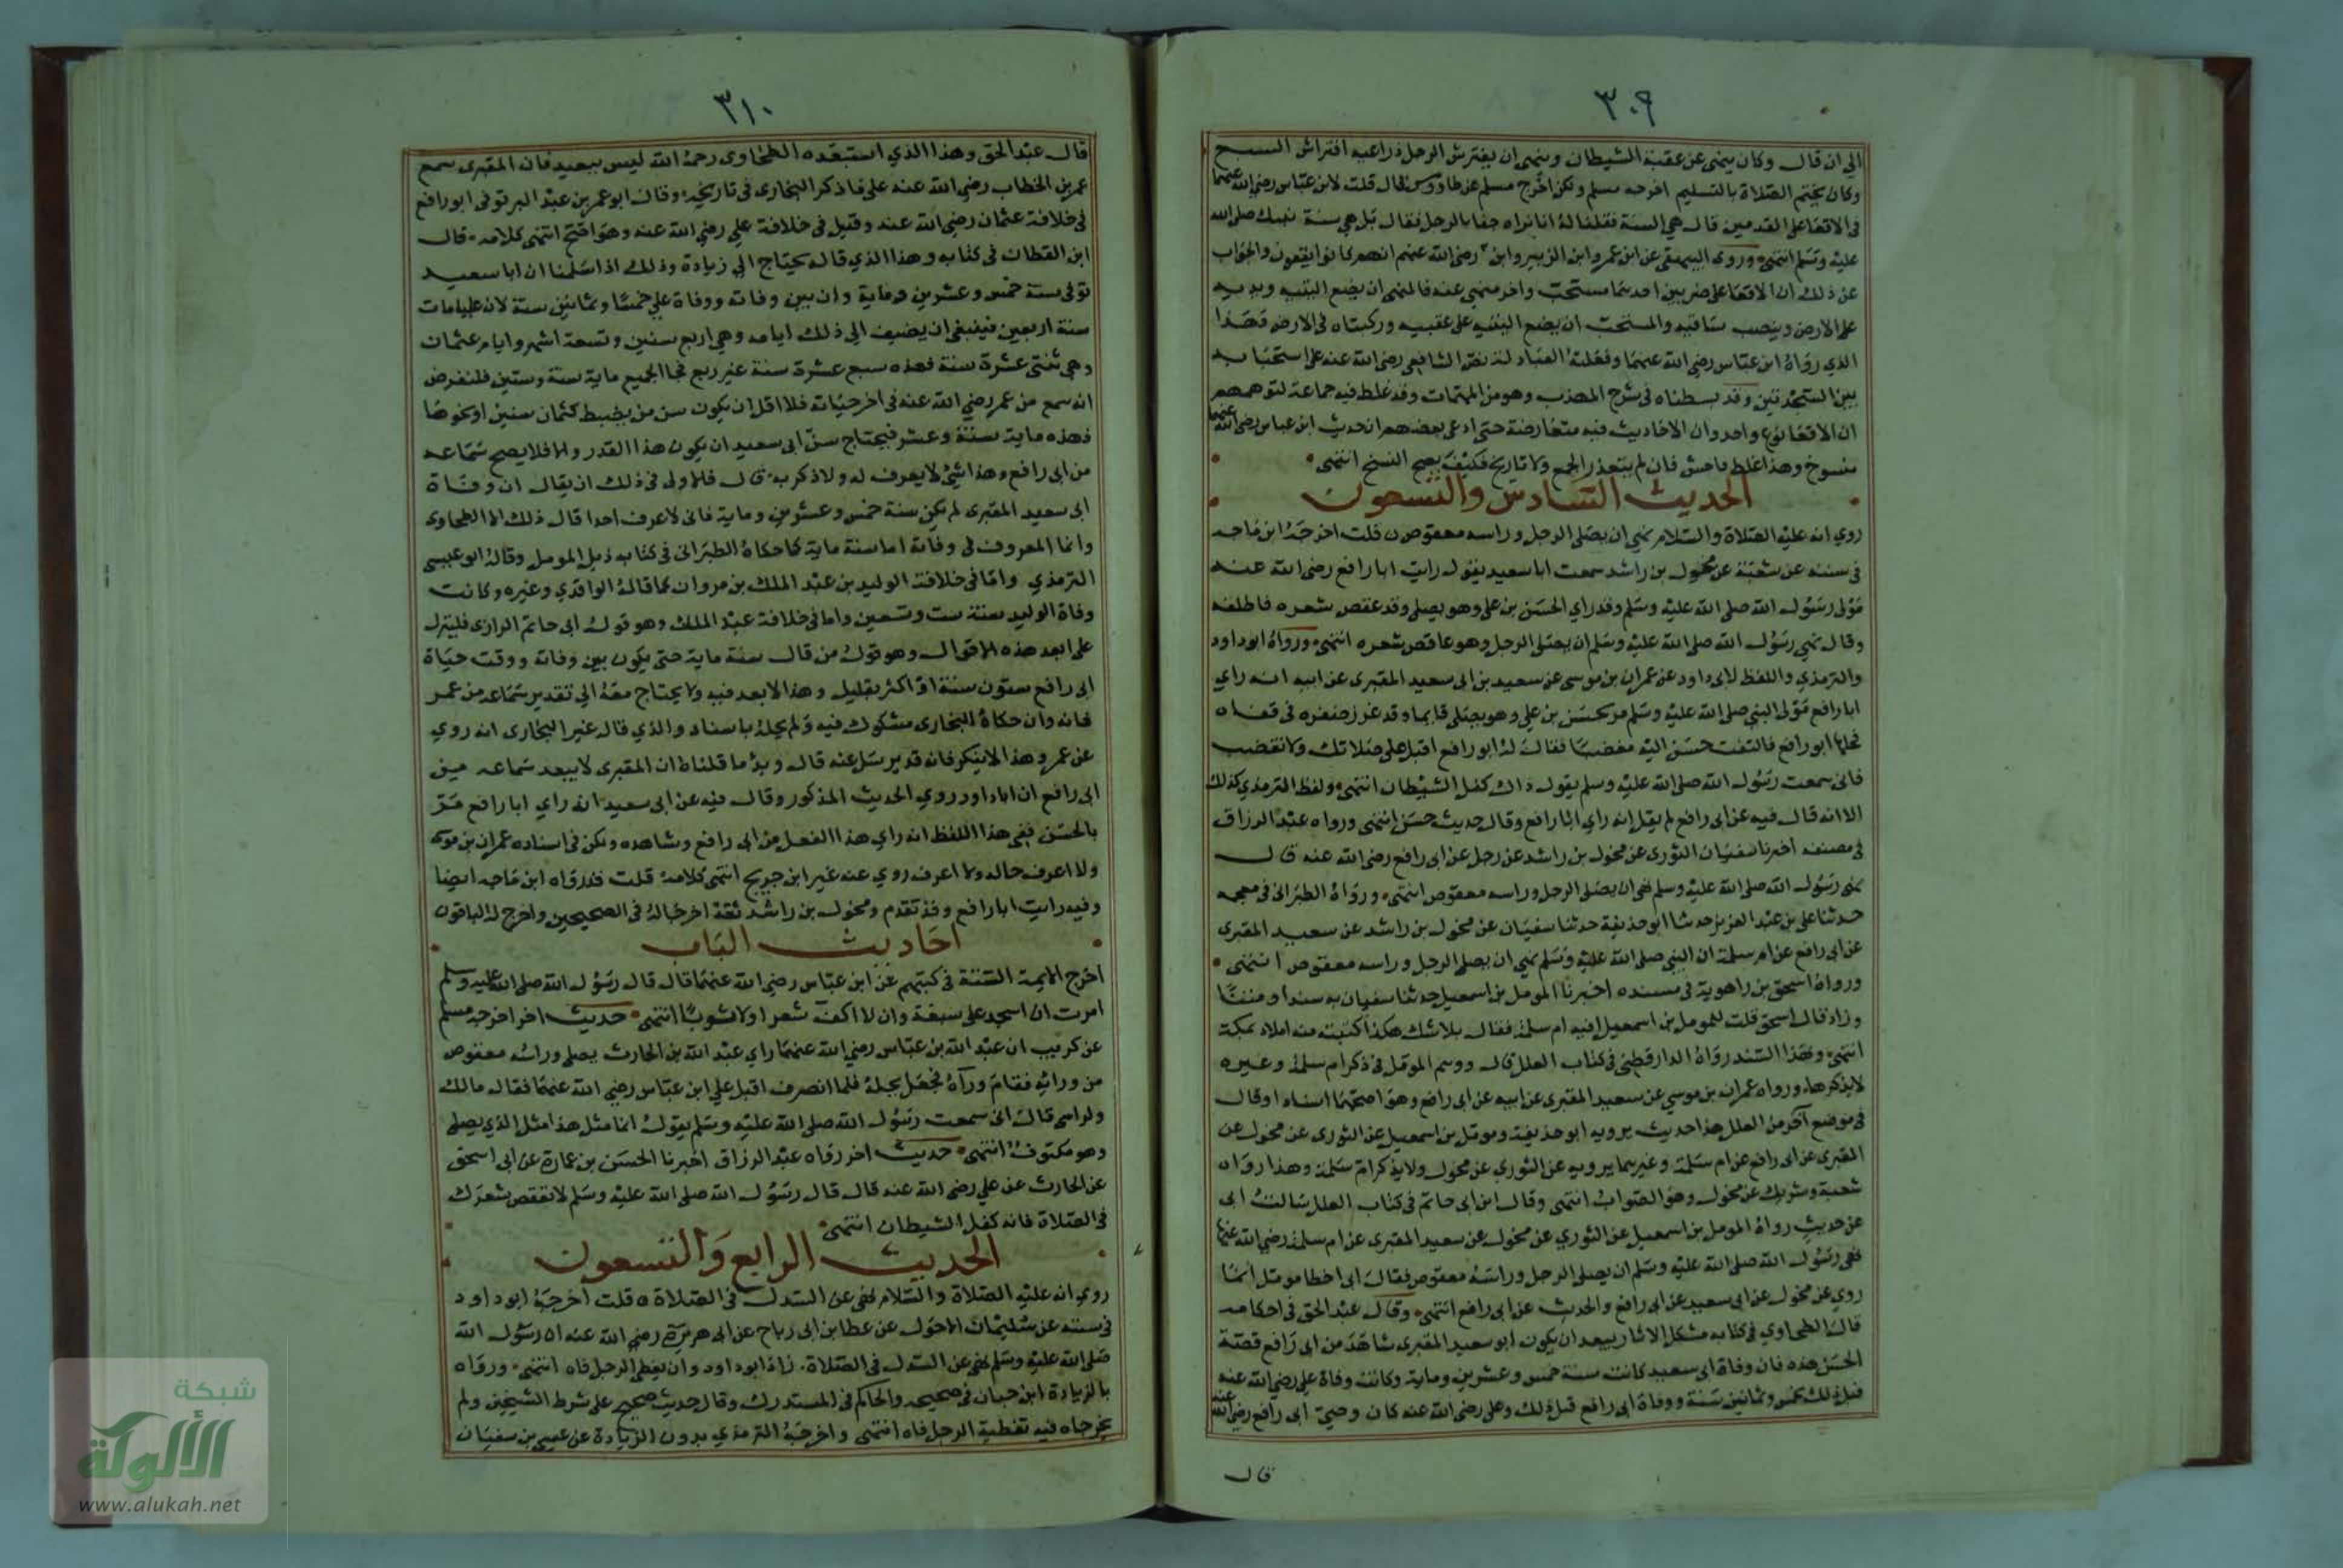 ٣٠٩
الي ان قال وكان ينهى عن عقبة الشيطان وينهى ان يفترش الرجل ذراعيه افتراش السبع
وكان يختم الصلاة بالتسليم اخرجه مسلم ولكن اخرج مسلم عن طاووس قال قلت لابن عباس رضي الله عنهما
في الاقعا على القدمين قال هي السنة فقلنا له انا نراه جفا بالرجل فقال بل هي سنة نبيك صلى الله
عليه وسلم انتهى وروى البيهقي عن ابن عمر وابن الزبير وابن رضي الله عنهم انهم كانوا يقعون والجواب
عن ذلك ان الاقعا على ضربين احدهما مستحب واخر منهي عنه فالمنهى ان يضع اليتيه ويديه
على الارض وينصب ساقيه والمستحب ان يضع اليتيه على عقبيه وركبتاه في الارض فهذا
الذي رواه ابن عباس رضي الله عنهما وفعلته العبادلة نص الشافعي رضي الله عنه على استحبابه
بين السجدتين وقد بسطناه في شرح المهذب وهو من المهمات وقد غلط فيه جماعة لتوهمهم
ان الاقعا نوع واحد وان الاحاديث فيه متعارضة حتى ادعى بعضهم ان حديث ابن عباس رضي الله عنهما
منسوخ وهذا غلط فاحش فانه لم يتعذر الجمع ولا تاريخ فكيف يصح النسخ انتهى
الحديث السادس والتسعون
روي انه عليه الصلاة والسلام نهى ان يصلى الرجل وراسه معقوص قلت اخرجه ابن ماجه
في سننه عن شعبة عن مخول بن راشد سمعت ابا سعيد يقول رايت ابا رافع رضي الله عنه
مولى رسول الله صلى الله عليه وسلم وقد راي الحسن بن علي وهو يصلي وقد عقص شعره فاطلقه
وقال نهى رسول الله صلى الله عليه وسلم ان يصلى الرجل وهو عاقص شعره انتهى ورواه ابو داود
والترمذي واللفظ لابى داود عن عمران بن موسى عن سعيد بن ابى سعيد المقبرى عن ابيه انه راي
ابا رافع مولى النبي صلى الله عليه وسلم مر بحسن بن علي وهو يصلى قايما وقد غرز ضفره في قفاه
فحلها ابو رافع فالتفت حسن اليه مغضبا فقال له ابو رافع اقبل على صلاتك ولا تغضب
فاني سمعت رسول الله صلى الله عليه وسلم يقول ذاك كفل الشيطان انتهى ولفظ الترمذي كذلك
الا انه قال فيه عن ابى رافع لم يقل انه راي ابا رافع وقال حديث حسن انتهى ورواه عبد الرزاق
في مصنفه اخبرنا سفيان الثورى عن مخول بن راشد عن رجل عن ابى رافع رضي الله عنه قال
نهى رسول الله صلى الله عليه وسلم ان يصلى الرجل وراسه معقوص انتهى ورواه الطبرانى في معجمه
حدثنا على بن عبد العزيز حدثنا ابو حذيفة حدثنا سفيان عن مخول بن راشد عن سعيد المقبرى
عن ابى رافع عن ام سلمة ان النبي صلى الله عليه وسلم نهى ان يصلى الرجل وراسه معقوص انتهى
ورواه اسحق بن راهوية في مسنده اخبرنا المومل بن اسمعيل حدثنا سفيان به سندا ومتنا
وزاد قال اسحق قلت للمومل بن اسمعيل افيه ام سلمة فقال بلا شك هكذا كتبت منه املاه بمكة
انتهى وبهذا السند رواه الدارقطنى في كتاب العلل قال ووهم المومل في ذكر ام سلمة وغيره
لا يذكرها ورواه عمران بن موسى عن سعيد المقبرى عن ابيه عن ابى رافع وهو اصحهما اسنادا وقال
في موضع آخر من العلل هذا حديث يرويه ابو حذيفة ومومل بن اسمعيل عن الثورى عن مخول عن
المقبرى عن ابى رافع عن ام سلمة وغيرهما يرويه عن الثورى عن مخول ولا يذكر ام سلمة وهذا رواه
شعبة وشريك عن مخول وهو الصواب انتهى وقال ابن ابى حاتم في كتاب العلل سالت ابى
عن حديث رواه المومل بن اسمعيل عن الثوري عن مخول عن سعيد المقبرى عن ام سلمة رضي الله عنها
نهى رسول الله صلى الله عليه وسلم ان يصلى الرجل وراسه معقوص فقال ابى اخطا مومل انما
روي عن مخول عن ابى سعيد عن ابى رافع والحديث عن ابى رافع انتهى وقال عبد الحق في احكامه
قال الطحاوي في كتابه مشكل الاثار يبعد ان يكون ابو سعيد المقبرى شاهد من ابى رافع قصة
الحسن هذه فان وفاة ابى سعيد كانت سنة خمس وعشرين وماية وكانت وفاة علي رضي الله عنه
قبل ذلك بخمس وثمانين سنة ووفاة ابى رافع قبل ذلك وعلى رضي الله عنه كان وصي ابى رافع رضي الله عنه
قال
٣١٠
قال عبد الحق وهذا الذي استبعده الطحاوى رحمه الله ليس ببعيد فان المقبرى سمع
عمر بن الخطاب رضي الله عنه على ما ذكر البخارى في تاريخه وقال ابو عمر بن عبد البر توفى ابو رافع
في خلافة عثمان رضي الله عنه وقيل في خلافة علي رضي الله عنه وهو اصح انتهى كلامه قال
ابن القطان في كتابه وهذا الذي قاله يحتاج الي زيادة وذلك اذا سلمنا ان ابا سعيد
توفى سنة خمس وعشرين وماية وان بين وفاته ووفاة علي خمسا وثمانين سنة لان عليا مات
سنة اربعين فينبغى ان يضيف الي ذلك ايامه وهي اربع سنين وتسعة اشهر وايام عثمان
وهي ثنتى عشرة سنة فهذه سبع عشرة سنة غير ربع فجا الجميع ماية سنة وسنتين فلنفرض
انه سمع من عمر رضي الله عنه في اخر حياته فلا اقل ان يكون سن من يضبط كثمان سنين او نحوها
فهذه ماية سنة وعشر فيحتاج سن ابى سعيد ان يكون هذا القدر والا فلا يصح سماعه
من ابى رافع وهذا شي لا يعرف له ولا ذكر به قال فالاولى في ذلك ان يقال ان وفاة
ابى سعيد المقبرى لم تكن سنة خمس وعشرين وماية فانى لا اعرف احدا قال ذلك الا الطحاوى
وانما المعروف في وفاته اما سنة ماية كما حكاه الطبرانى في كتابه ذيل المومل وقاله ابو عيسى
الترمذي واما في خلافة الوليد بن عبد الملك بن مروان كما قاله الواقدي وغيره وكانت
وفاة الوليد سنة ست وتسعين واما في خلافة عبد الملك وهو قول ابى حاتم الرازى فلينزل
على ابعد هذه الاقوال وهو قول من قال سنة ماية حتى يكون بين وفاته ووقت حياة
ابى رافع ستون سنة او اكثر بقليل وهذا لا بعد فيه ولا يحتاج معه الي تقدير سماعه من عمر
فانه وان حكاه البخارى مشكوك فيه ولم يحله باسناد والذي قاله غير البخارى انه روي
عن عمر وهذا لا ينكر فانه قد يرسل عنه قال ويؤيد ما قلناه ان المقبرى لا يبعد سماعه من
ابى رافع ان ابا داود روي الحديث المذكور وقال فيه عن ابى سعيد انه راي ابا رافع مر
بالحسن ففى هذا اللفظ انه راي هذا الفعل من ابى رافع وشاهده ولكن في اسناده عمران بن موسى
ولا اعرف حاله ولا اعرف روي عنه غير ابن جريج انتهى كلامه قلت قد رواه ابن ماجه ايضا
وفيه رايت ابا رافع وقد تقدم ومخول بن راشد ثقة اخرجا له في الصحيحين واخرج له الباقون
احاديث الباب
اخرج الايمة الستة في كتبهم عن ابن عباس رضي الله عنهما قال قال رسول الله صلى الله عليه وسلم
امرت ان اسجد على سبعة وان لا اكف شعرا ولا ثوبا انتهى حديث اخر اخرجه مسلم
عن كريب ان عبد الله بن عباس رضي الله عنهما راي عبد الله بن الحارث يصلى وراسه معقوص
من ورائه فقام ورآه فجعل يحله فلما انصرف اقبل علي ابن عباس رضي الله عنهما فقال مالك
ولراسى قال انى سمعت رسول الله صلى الله عليه وسلم يقول انما مثل هذا مثل الذي يصلى
وهو مكتوف انتهى حديث اخر رواه عبد الرزاق اخبرنا الحسن بن عمارة عن ابى اسحق
عن الحارث عن علي رضي الله عنه قال قال رسول الله صلى الله عليه وسلم لا تعقص شعرك
في الصلاة فانه كفل الشيطان انتهى
الحديث الرابع والتسعون
روي انه عليه الصلاة والسلام نهى عن السدل في الصلاة قلت اخرجه ابو داود
في سننه عن سليمان الاحول عن عطا بن ابى رباح عن ابى هريرة رضي الله عنه ان رسول الله
صلى الله عليه وسلم نهى عن السدل في الصلاة زاد ابو داود وان يغطى الرجل فاه انتهى ورواه
بالزيادة ابن حبان في صحيحه والحاكم في المستدرك وقال حديث صحيح على شرط الشيخين ولم
يخرجاه فيه تغطية الرجل فاه انتهى واخرجه الترمذي بدون الزيادة عن عسل بن سفيان
شبكة
الألوكة
www.alukah.net